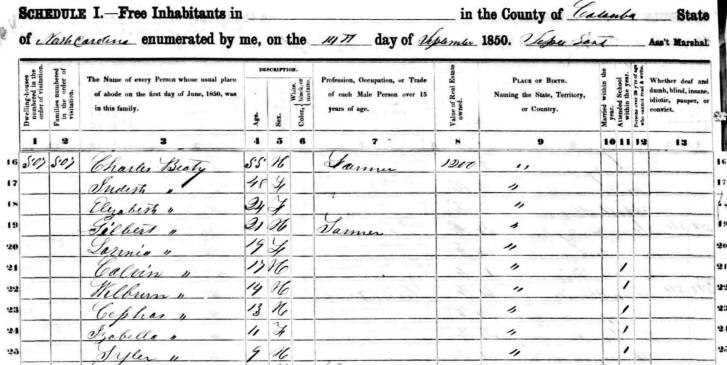 SCHEDULE I.—Free Inhabitants in in the County of Catawba State
of North Carolina enumerated by me, on the 14th day of September 1850. Ass't Marshal.
Dwelling-houses numbered in the order of visitation.
Families numbered in the order of visitation.
The Name of every Person whose usual place of abode on the first day of June, 1850, was in this family.
DESCRIPTION.
Age.
Sex.
Color, White, black, or mulatto.
Profession, Occupation, or Trade of each Male Person over 15 years of age.
Value of Real Estate owned.
PLACE OF BIRTH. Naming the State, Territory, or Country.
Married within the year.
Attended School within the year.
Persons over 20 y'rs of age who cannot read & write.
Whether deaf and dumb, blind, insane, idiotic, pauper, or convict.
1 2 3 4 5 6 7 8 9 10 11 12 13
16 507 507 Charles Beaty 55 M Farmer 1200 " 16
17 " 48 F " 17
18 Elizabeth " 24 F "
19 Gilbert " 21 M Farmer " 19
20 " 19 F " 20
21 Calvin " 17 M " 1 21
22 Wilburn " 14 M " 1 22
23 Cephas " 13 M " 1 23
24 Izabella " 11 F " 1 24
25 Tyler " 9 M " 1 25